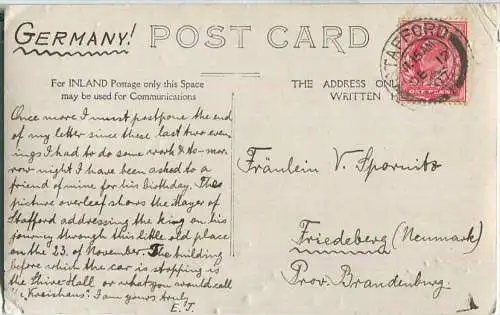 GERMANY!
POST CARD
For INLAND Postage only this Space
may be used for Communications
THE ADDRESS ONL
WRITTEN H
STAFFORD
ONE PENNY
Once more I must postpone the end
of my letter since these last two even-
ings I had to do some work & to-mor-
row night I have been asked to a
friend of mine for his birthday. The
picture overleaf shows the Mayor of
Stafford addressing the King on his
journey through this little old place
on the 23. of November. The building
before which the car is stopping is
the Shire Hall or what you would call
"Kreishaus". I am yours truly
E. J.
Fräulein V. Spornitz
Friedeberg (Neumark)
Prov. Brandenburg.